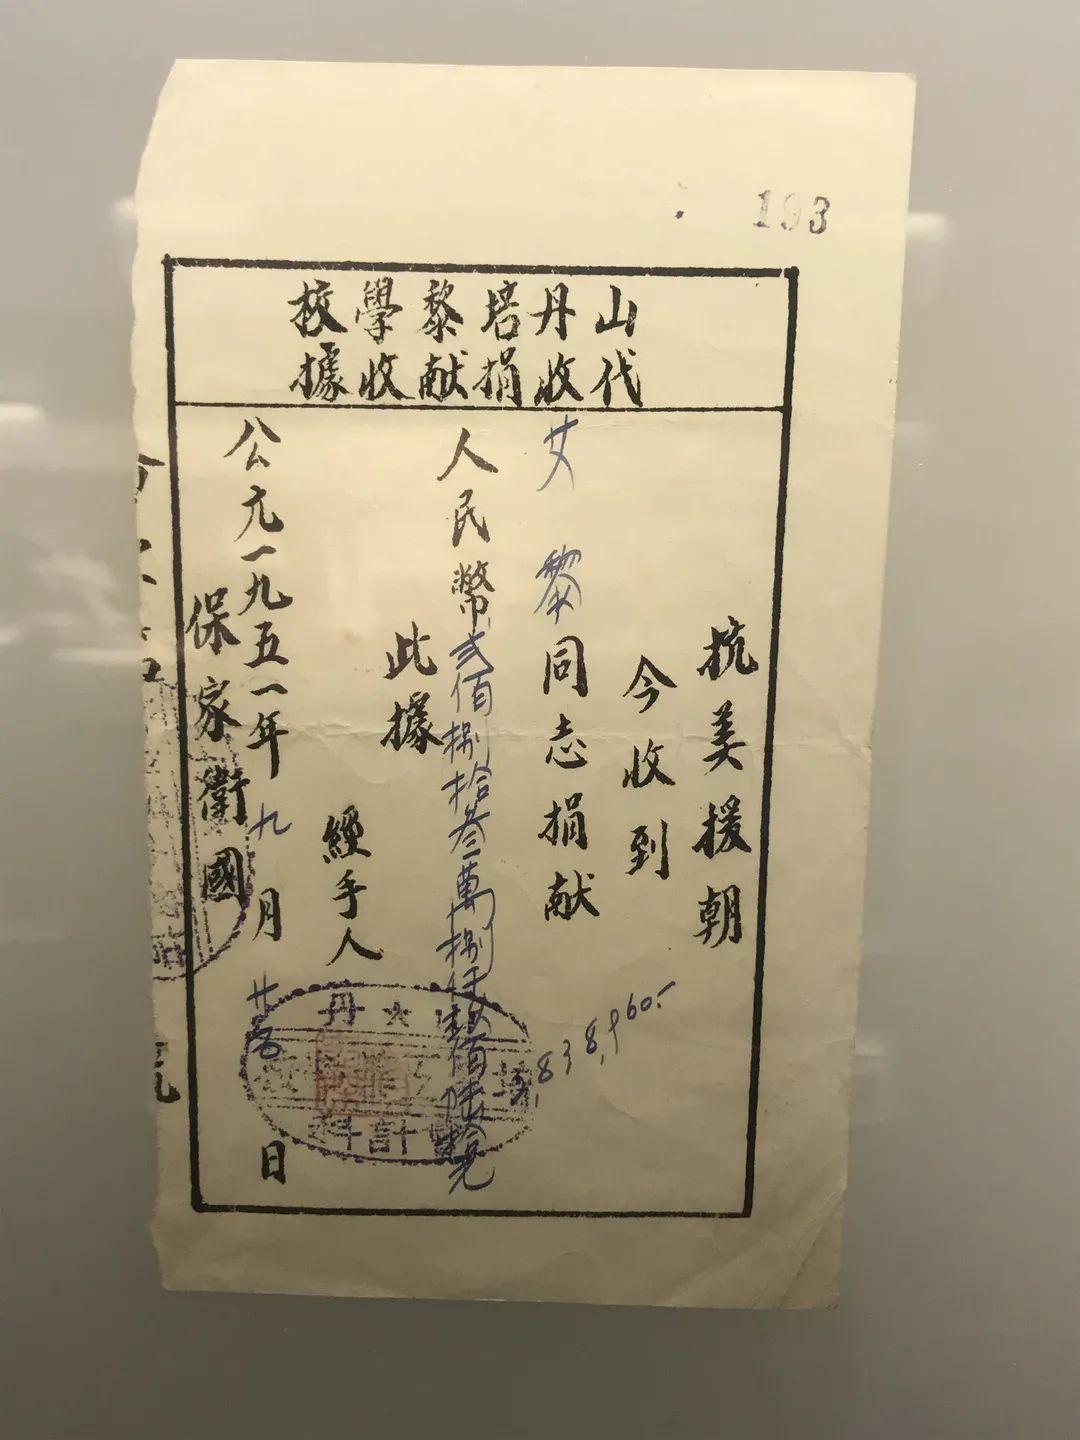 193
山丹培黎學校
代收捐献收據
抗美援朝
今收到
艾黎同志捐献
人民幣弍佰捌拾叁萬捌仟玖佰陸拾元
2,838,960.-
此據
經手人
公元一九五一年九月廿五日
保家衛國
山★丹
會計科